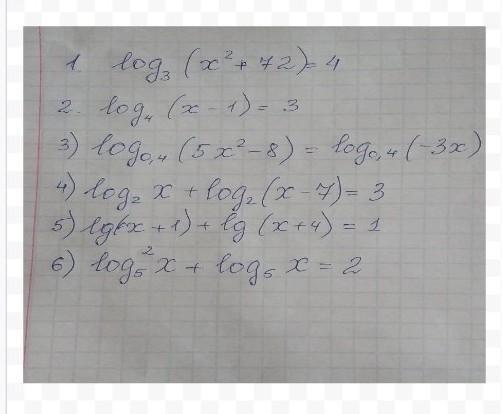 1. log₃ (x² + 72) = 4
2. log₄ (x - 1) = 3
3) log₀,₄ (5x² - 8) = log₀,₄ (-3x)
4) log₂ x + log₂ (x - 7) = 3
5) lg(x + 1) + lg (x + 4) = 1
6) log₅² x + log₅ x = 2